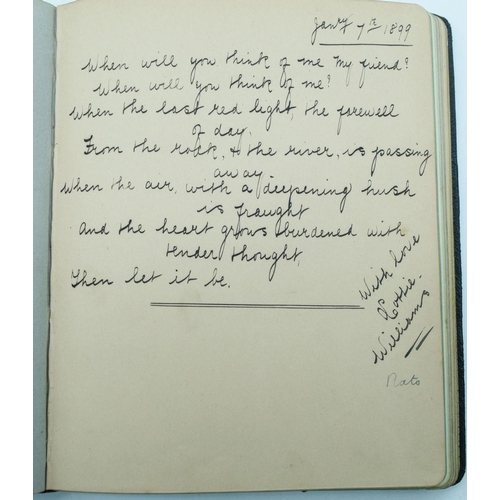 Janry 7th 1899
When will you think of me my friend?
When will you think of me?
When the last red light, the farewell
of day,
From the rock, & the river, is passing
away.
When the air, with a deepening hush
is fraught
And the heart grows burdened with
tender thought,
Then let it be.
With love
Lottie
Williams